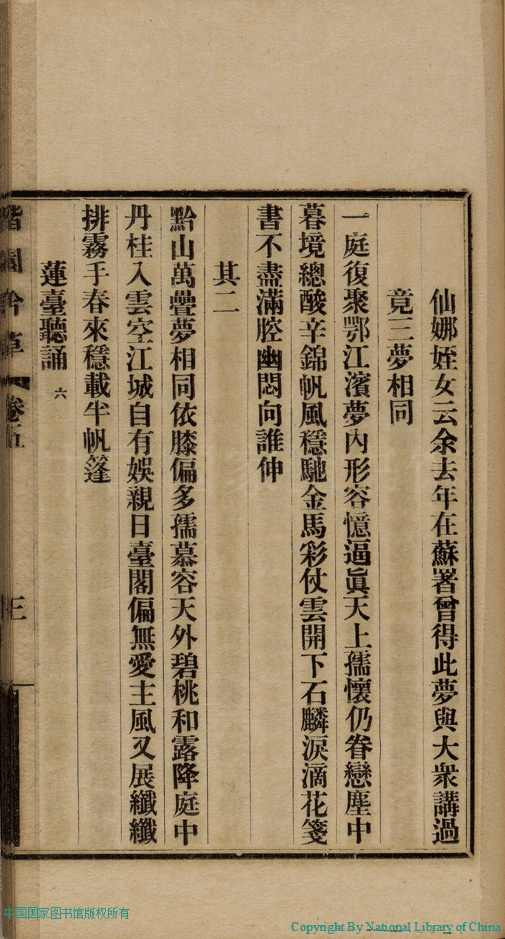 仙娜姪女云余去年在蘇署曾得此夢與大衆講過
竟三夢相同
一庭復聚鄂江濱夢內形容憶逼眞天上孺懷仍眷戀塵中
暮境總酸辛錦帆風穩馳金馬彩仗雲開下石麟淚滴花箋
書不盡滿腔幽悶向誰伸
其二
黔山萬疊夢相同依膝偏多孺慕容天外碧桃和露降庭中
丹桂入雲空江城自有娛親日臺閣偏無愛主風又展纖纖
排霧手春來穩載半帆篷
蓮臺聽誦 六
吟草 卷五
中国国家图书馆版权所有
Copyright By National Library of China